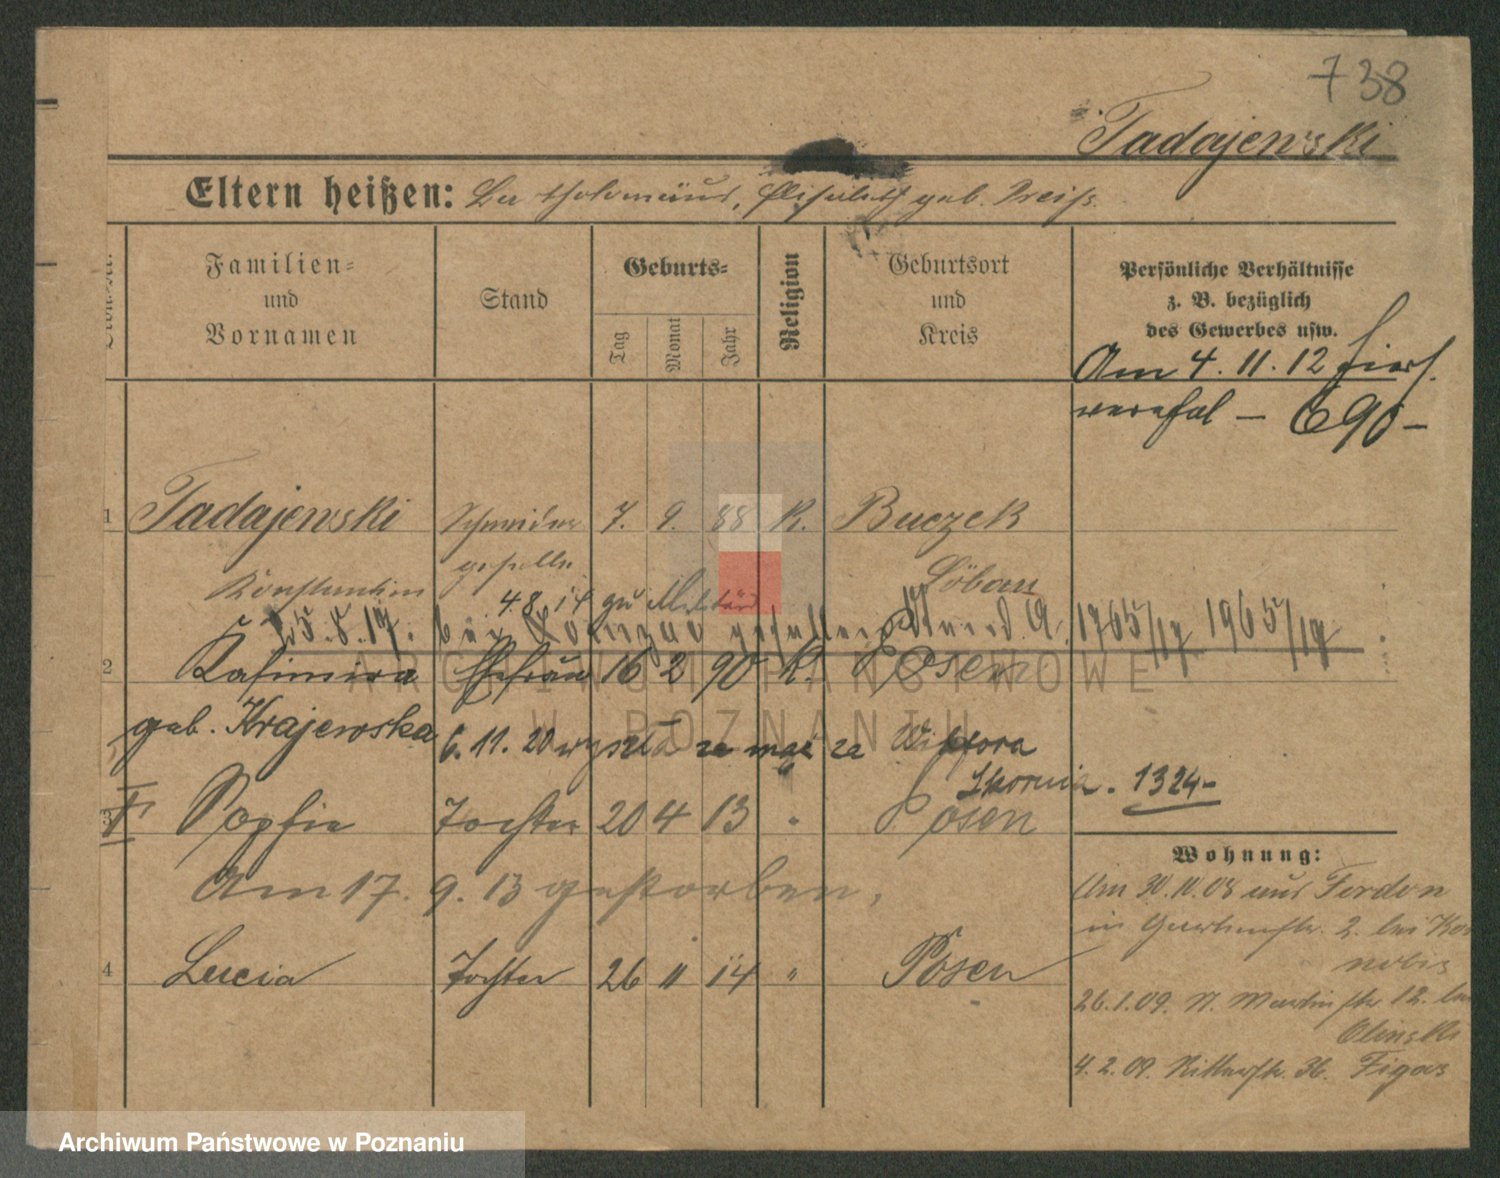 738
Tadajewski
Eltern heißen: Bartholomäus, Elisabeth geb. Preiß.
Familien= und Vornamen
Stand
Geburts=
Tag
Monat
Jahr
Religion
Geburtsort und Kreis
Persönliche Verhältnisse
z. B. bezüglich
des Gewerbes usw.
Am 4. 11. 12 hierf.
verehel – 690–
1 Tadajewski Schneider 7. 9. 88 K. Buczek
Konstantin geselle Löbau
4 8. 14 zu Militär
25. 8. 17. gefallen 1965/17
2 Kasimira Ehefrau 16 2 90 K. Posen
geb. Krajewska
6. 11. 20 wyszła za mąż za Wiktora
Skornia. 1324–
3 Sophie Tochter 20 4 13 " Posen
Am 17. 9. 13 gestorben.
4 Lucia Tochter 26 11 14 " Posen
Wohnung:
Am 30. 10. 08 aus Fordon
in Gartenstr. 2. bei
26. 1. 09. St. Martinstr 12. bei
Olinski
4. 2. 09. Ritterstr. 36. Figas
ARCHIWUM PAŃSTWOWE
W POZNANIU
Archiwum Państwowe w Poznaniu